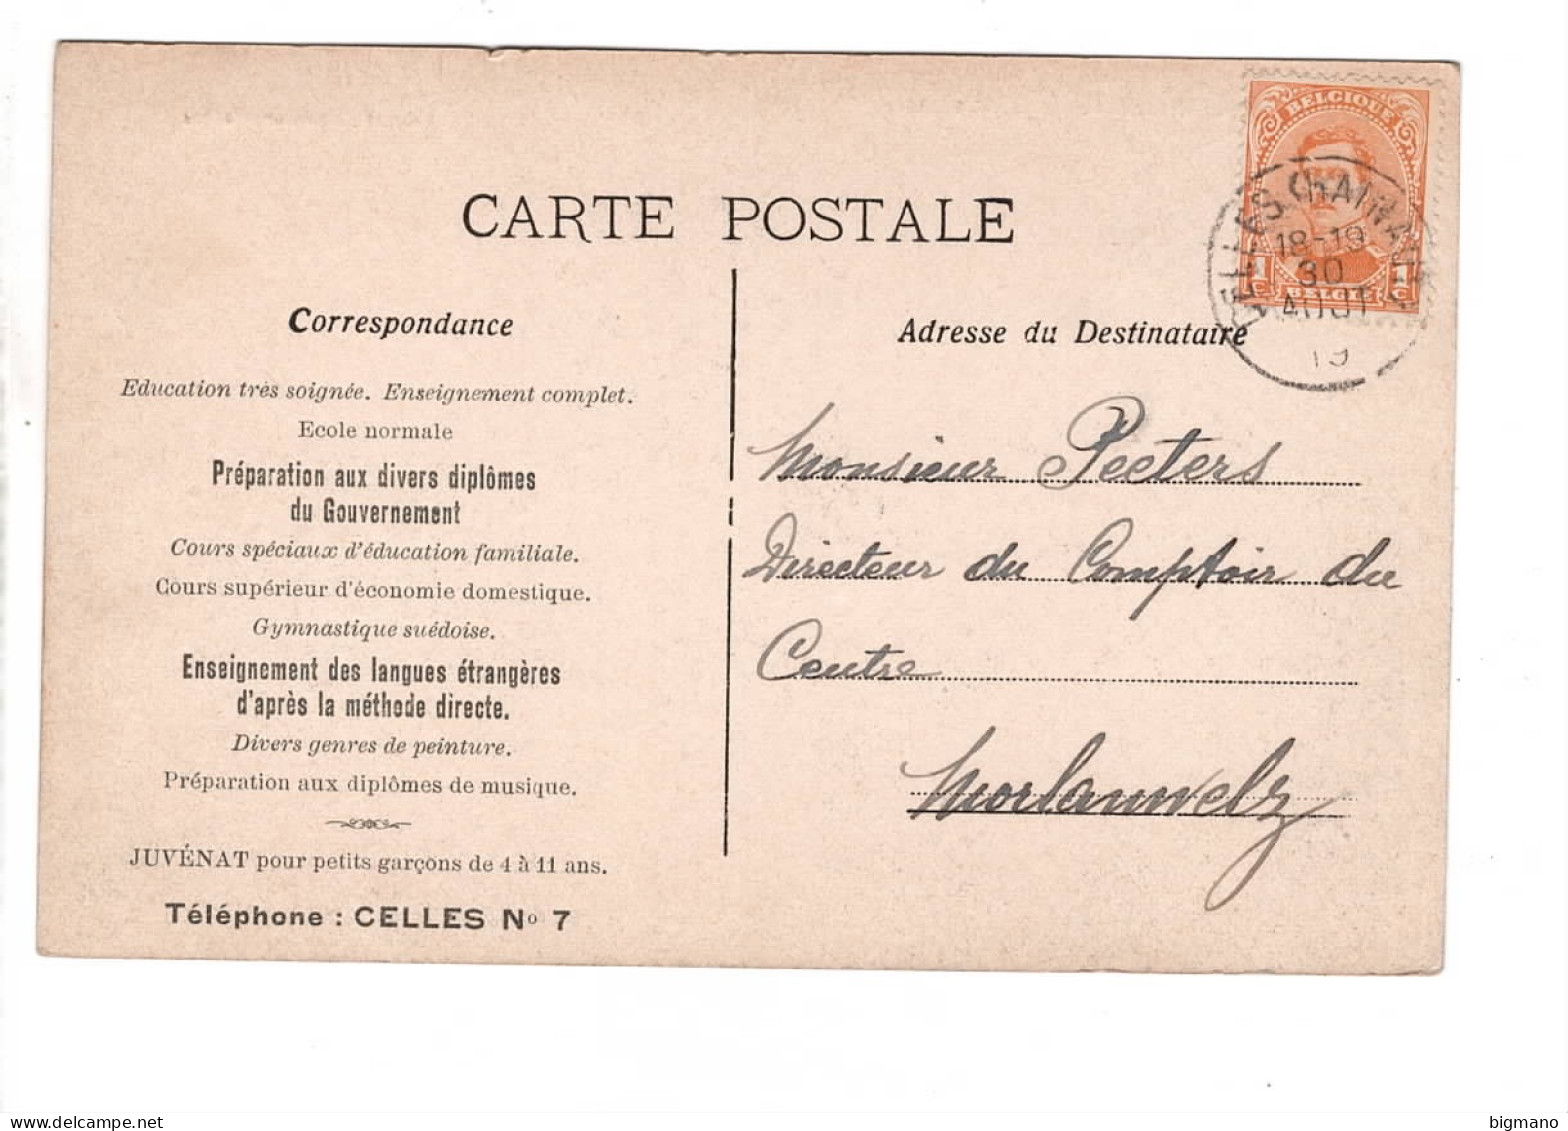 BELGIQUE
18-19
30
AOUT
19
1 C 1 C
BELGIË
CARTE POSTALE
Correspondance
Education très soignée. Enseignement complet.
Ecole normale
Préparation aux divers diplômes
du Gouvernement
Cours spéciaux d'éducation familiale.
Cours supérieur d'économie domestique.
Gymnastique suédoise.
Enseignement des langues étrangères
d'après la méthode directe.
Divers genres de peinture.
Préparation aux diplômes de musique.
JUVÉNAT pour petits garçons de 4 à 11 ans.
Téléphone : CELLES No 7
Adresse du Destinataire
Monsieur Peeters
Directeur du Comptoir du
Centre
Morlanwelz
delcampe.net
bigmano